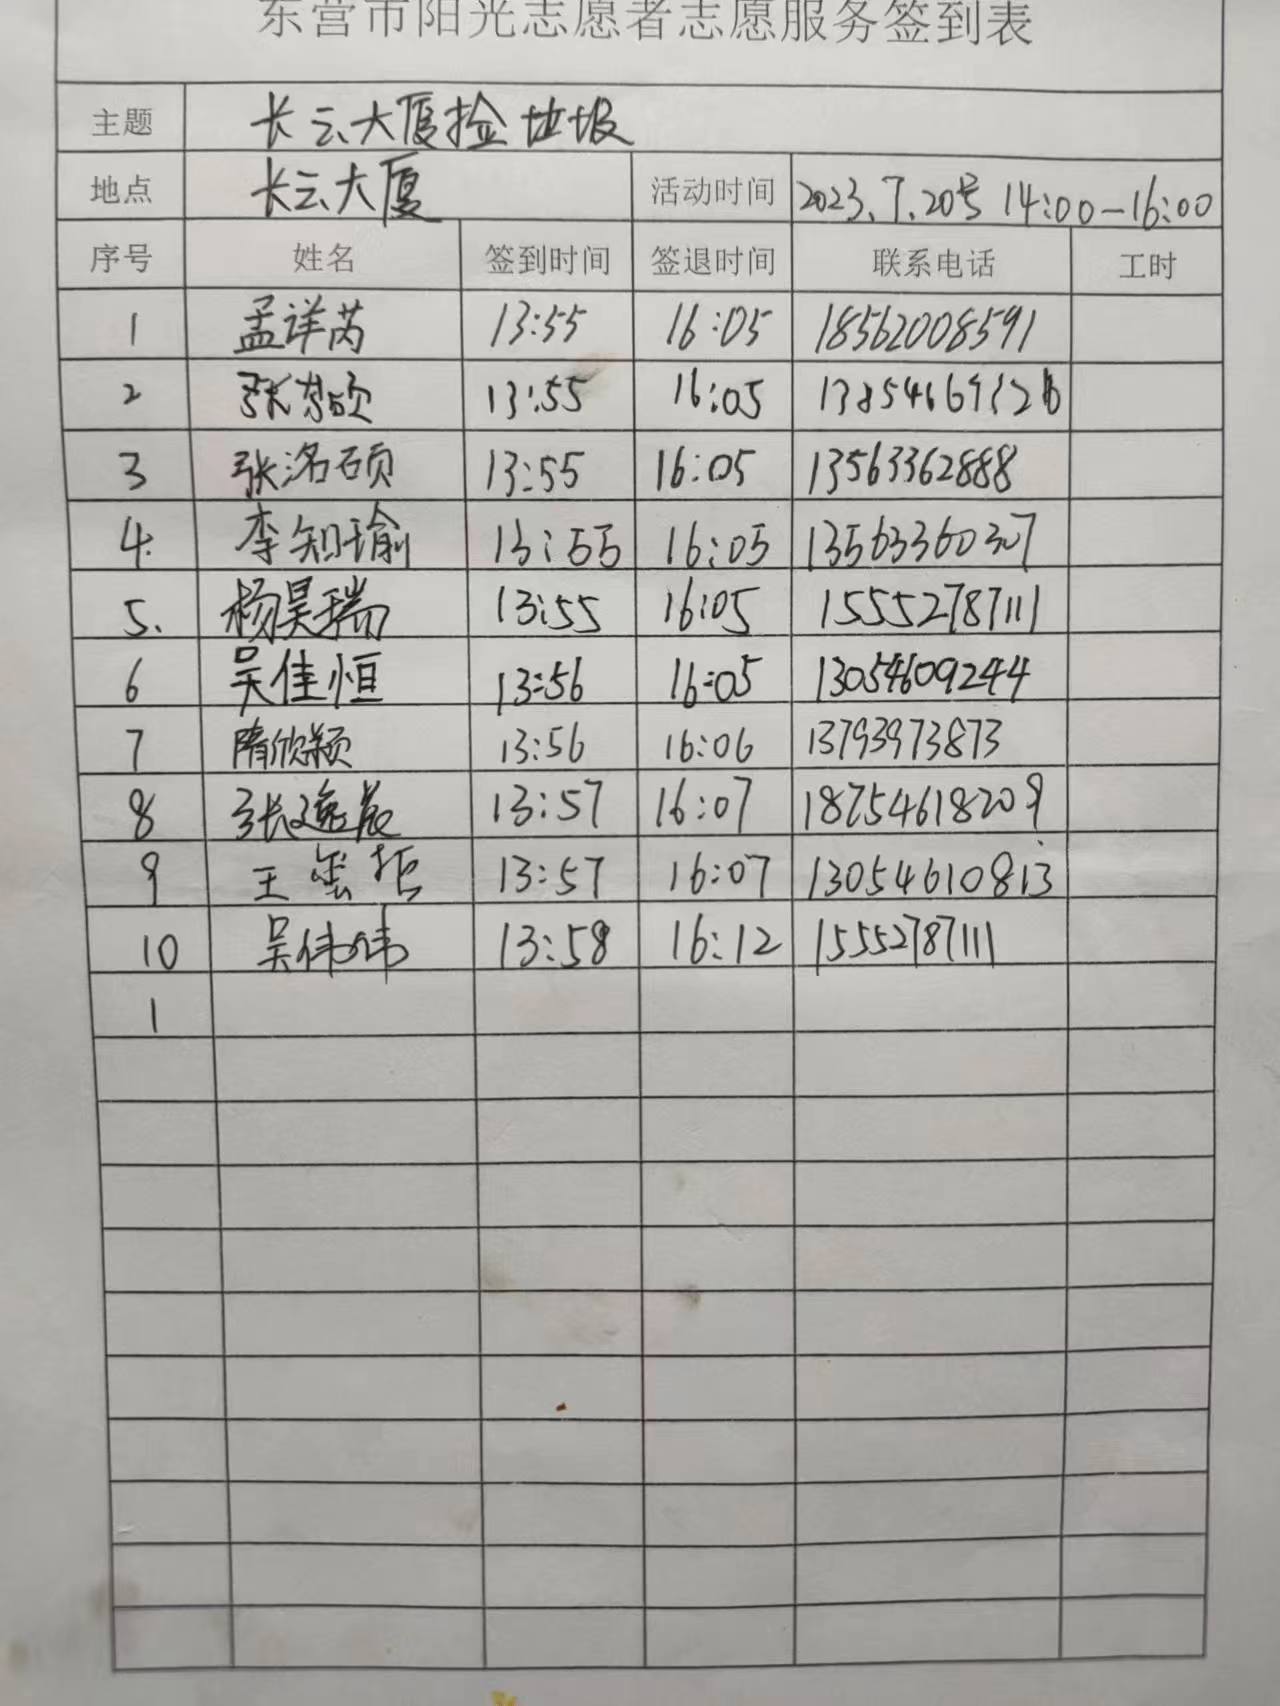 东营市阳光志愿者志愿服务签到表
主题 长云大厦捡垃圾
地点 长云大厦 活动时间 2023.7.20号 14:00-16:00
序号 姓名 签到时间 签退时间 联系电话 工时
1 孟详芮 13:55 16:05 18562008591
2 张 硕 13:55 16:05
3 张洺硕 13:55 16:05 13563362888
4. 李知瑜 13:55 16:05 13563360307
5. 杨昊瑞 13:55 16:05 15552787111
6 吴佳恒 13:56 16:05 13054609244
7 隋欣颖 13:56 16:06 13793973873
8 张逸辰 13:57 16:07 18754618209
9 王 13:57 16:07 13054610813
10 吴伟伟 13:58 16:12 15552787111
1